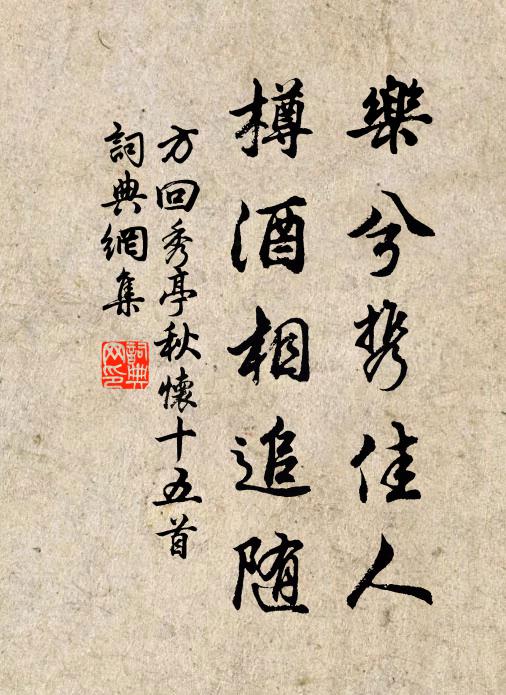 樂兮携佳人
樽酒相追随
方回秀亭秋懷十五首
詞典網集
詞典网印